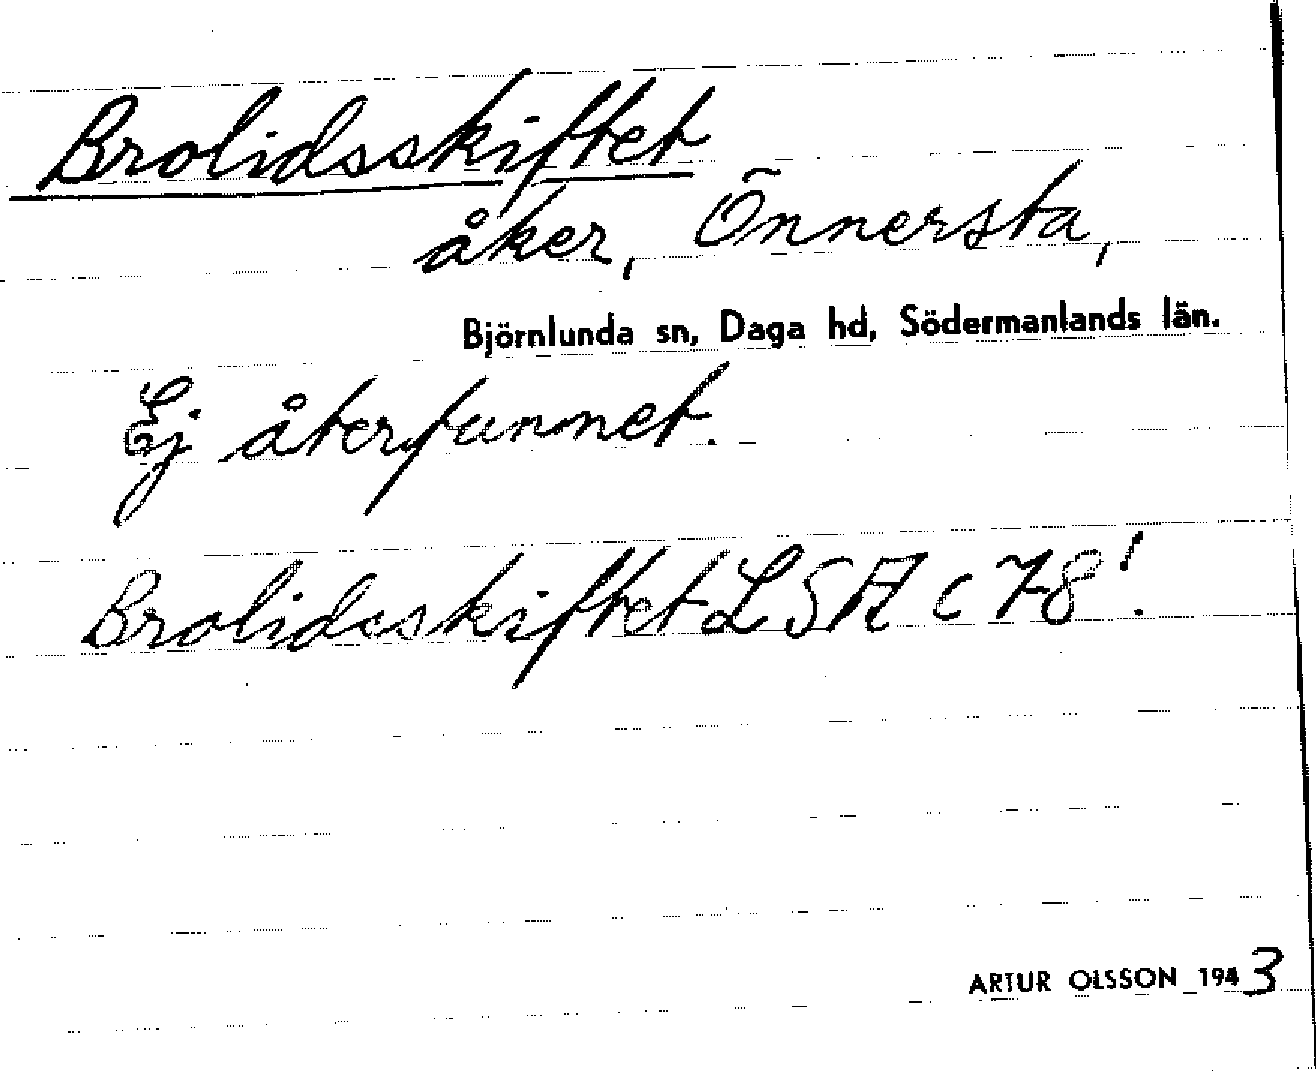 Brolidsskiftet
åker, Önnersta,
Björnlunda sn, Daga hd, Södermanlands län.
Ej återfunnet.
Brolidsskiftet LSA C 78!
ARTUR OLSSON 1943